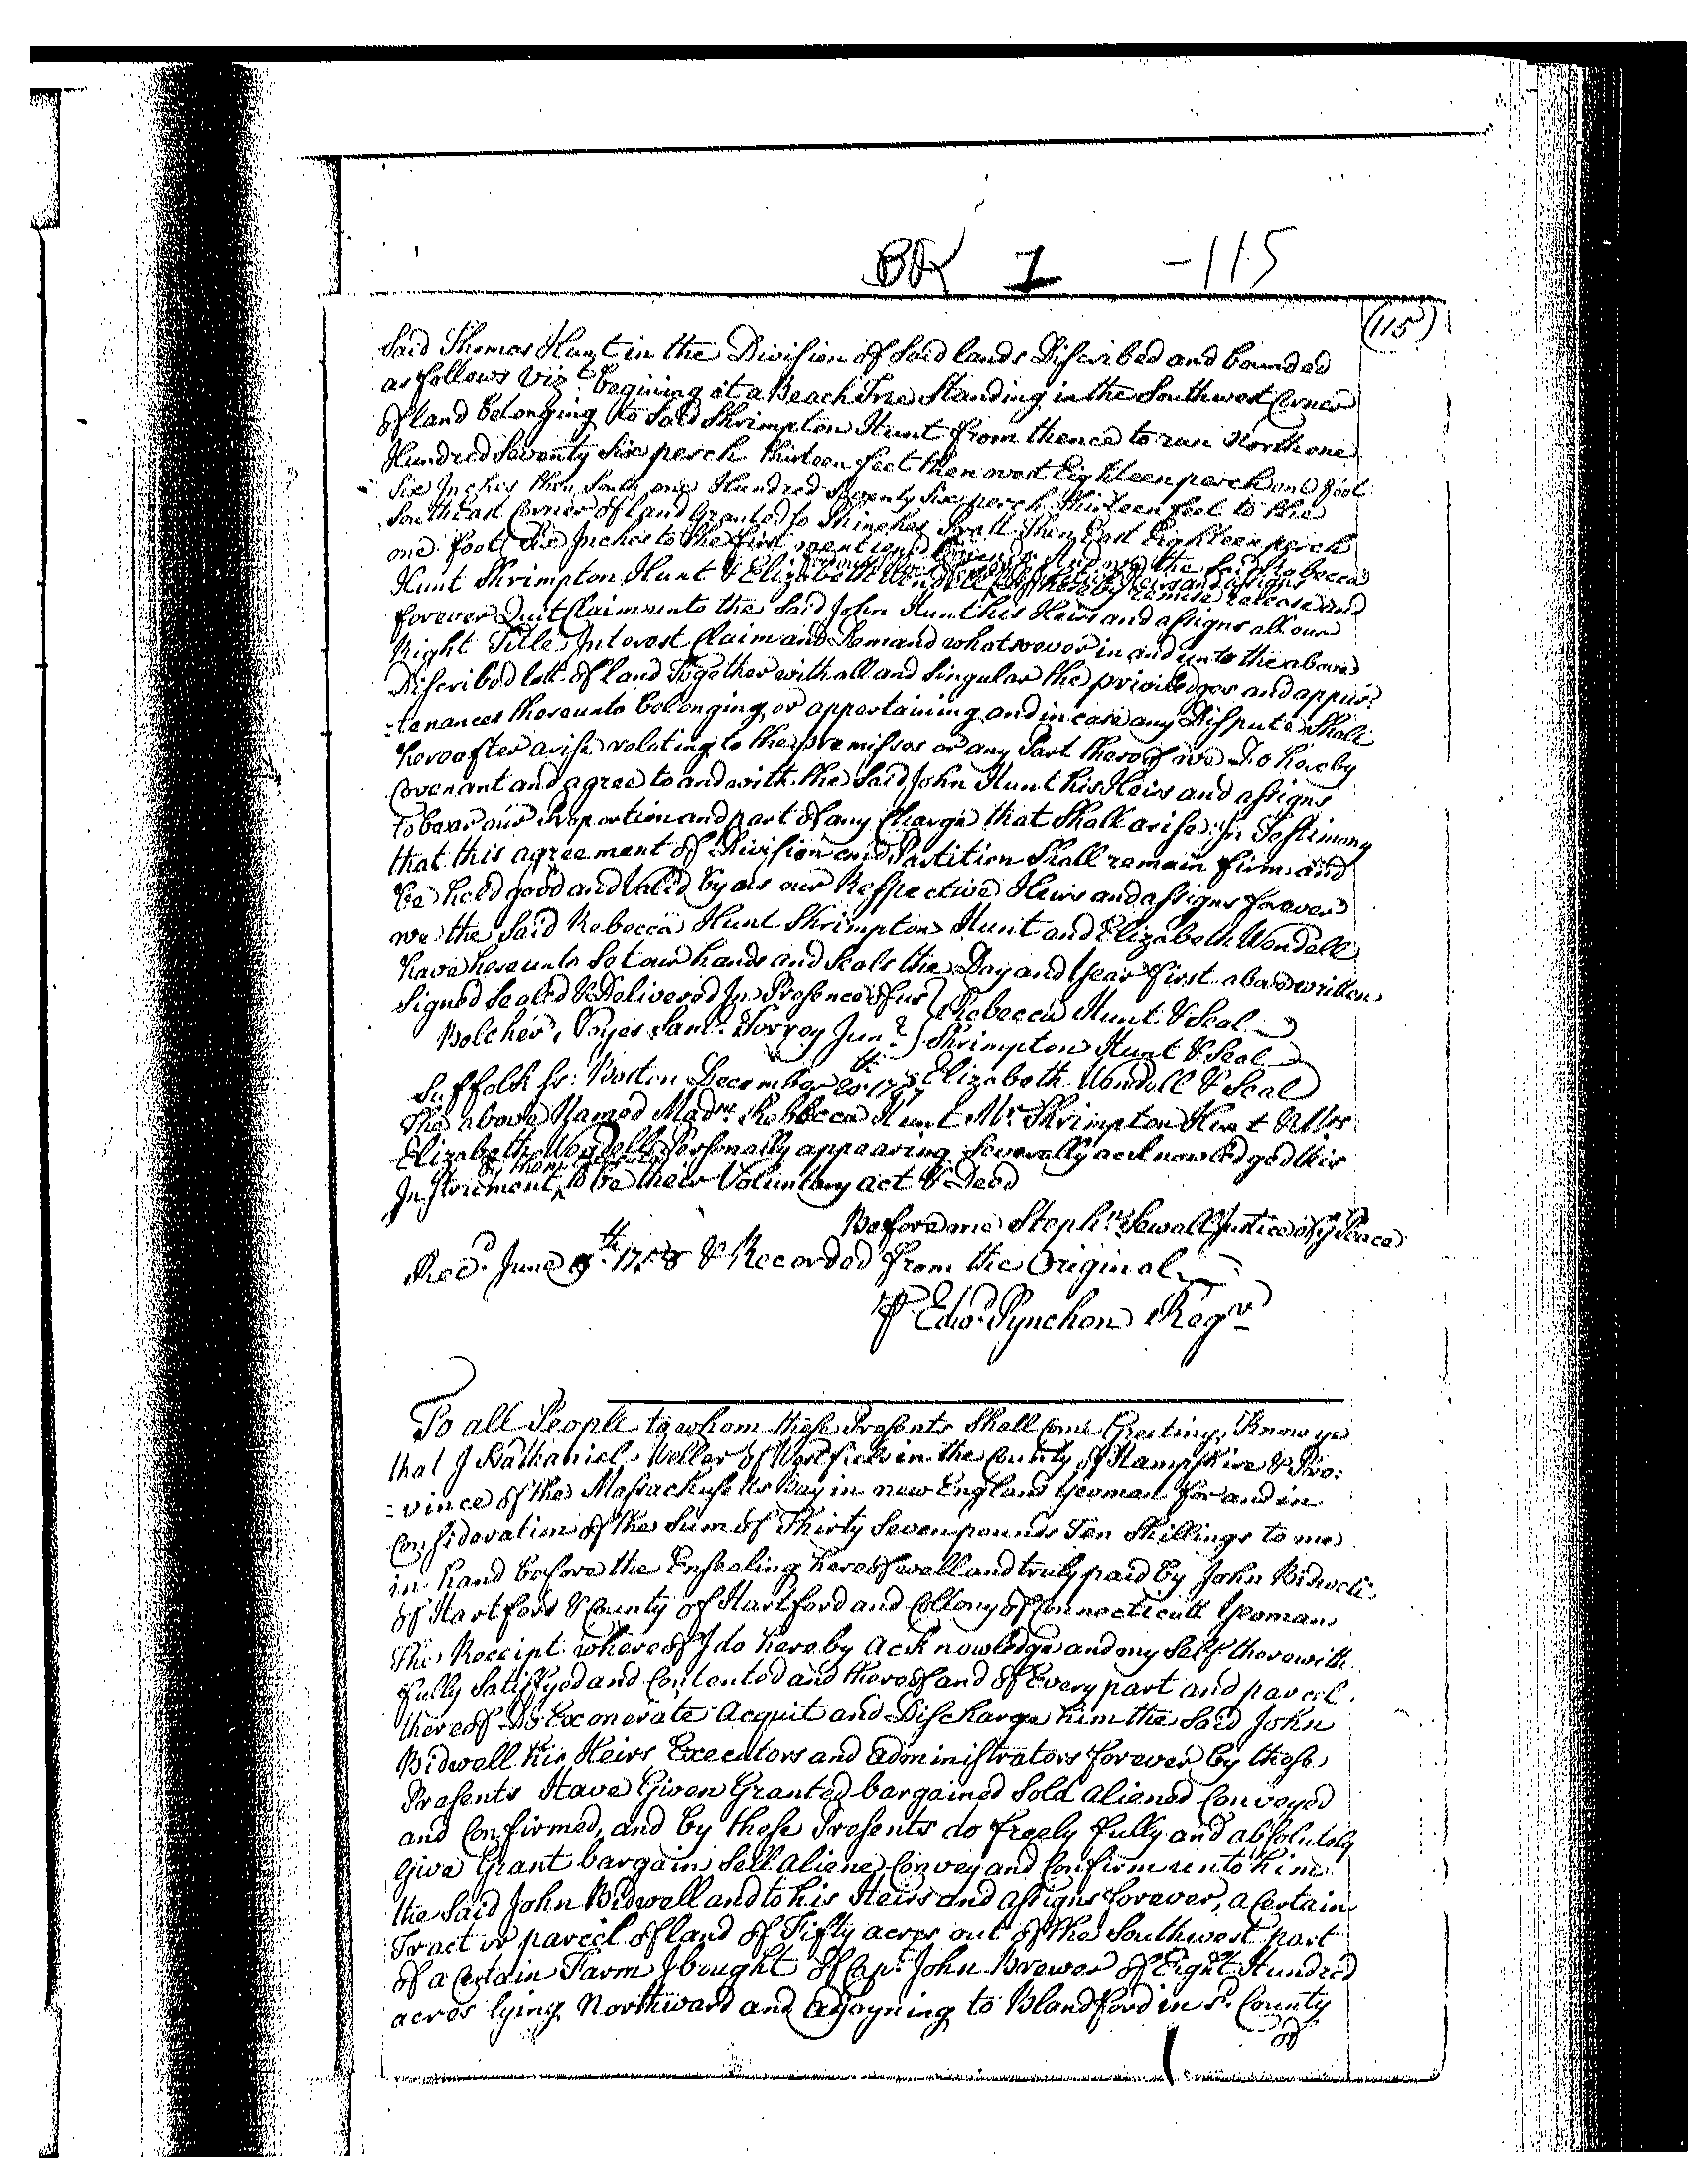 BK 1 -115
(115)
Said Thomas Hunt in the Division of Said lands Discribed and bounded
as follows Vizt. begining at a Beach Tree Standing in the Southwest Corner
of land belonging to Said Shrimpton Hunt from thence to run North one
Hundred Seventy Six perch thirteen feet then west Eighteen perch one foot
Six Inches then South one Hundred Seventy Six perch Thirteen feet to the
Southeast Corner of land Granted to Then East Eighteen perch
one foot Six Inches to the first mentioned And we the said Rebecca
Hunt Shrimpton Hunt & Elizabeth Wendell Do hereby remise release and
forever Quit Claim unto the Said John Hunt his Heirs and assigns all our
Right Title Interest Claim and Demand whatsoever in and unto the above
Discribed lott of land Together with all and Singular the priviledges and appur=
=tenances thereunto belonging or appertaining and in case any Dispute Shall
hereafter arise relating to the premisses or any Part thereof we Do hereby
Covenant and agree to and with the Said John Hunt his Heirs and assigns
to bear our Proportion and part of any Charge that Shall arise: In Testimony
that this agreement of Division and Partition Shall remain firm and
be held good and Valid by us our Respective Heirs and assigns forever
we the Said Rebecca Hunt Shrimpton Hunt and Elizabeth Wendell
have hereunto Set our hands and Seals the Day and Year first above written
Signed Sealed & Delivered In Presence of us } Rebecca Hunt & Seal
Belcher Noyes Saml. Torrey Junr. } Shrimpton Hunt & Seal
Suffolk Ss: Boston December 20th 1757 Elizabeth Wendell & Seal
The above Named Madm. Rebbecca Hunt Mr. Shrimpton Hunt & Mrs
Elizabeth Wendell Personally appearing Severally acknowledged this
Instrument to be their Voluntary act & Deed
Before me Stephn. Sewall Justice of ye Peace
Recd. June 9th. 1758 & Recorded from the Original
P Edwd. Pynchon Regr
To all People to whom these Presents Shall Come Greeting; Know ye
that I Nathaniel Weller of Westfield in the County of Hampshire & Pro:
=vince of the Massachusetts Bay in new England Yeoman for and in
Consideration of the Sum of Thirty Seven pounds Ten Shillings to me
in hand before the Ensealing hereof well and truly paid by John Bidwell
of Hartford & County of Hartford and Collony of Connecticutt Yeoman
The Receipt whereof I do hereby acknowledge and my Self therewith
fully Satisfyed and Contented and thereof and of Every part and parcel
thereof Do Exconerate Acquit and Discharge him the Said John
Bidwell his Heirs Executors and Administrators forever by these
Presents Have Given Granted bargained Sold Aliened Conveyed
and Confirmed, and by these Presents do freely fully and absolutely
Give Grant bargain Sell aliene Convey and Confirm unto him
the Said John Bidwell and to his Heirs and assigns forever, a Certain
Tract or parcel of land of Fifty acres out of the Southwest part
of a Certain Farm I bought of Capt John Brewer of Eight Hundred
acres lying Northward and adjoyning to Blandford in sd. County
of